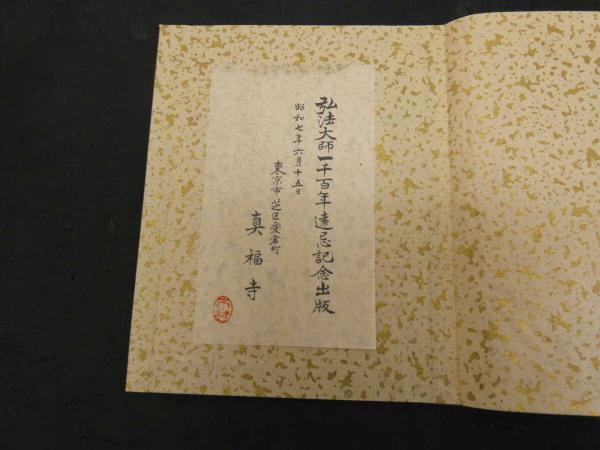 弘法大師一千百年遠忌記念出版
昭和七年六月十五日
東京市芝区愛宕町
真福寺